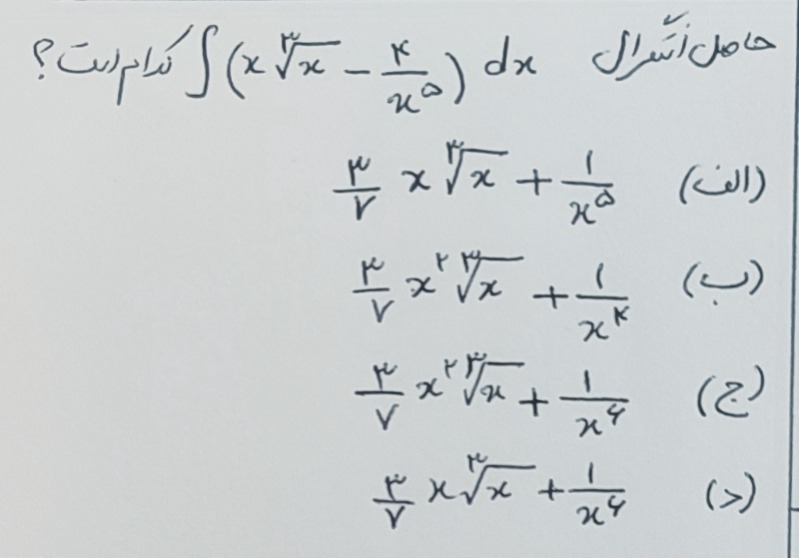 حاصل انتگرال ∫(x∛x − ۴/x^۵) dx کدام است؟
الف) ۳/۷ x ∛x + ۱/x^۵
ب) ۳/۷ x^۲ ∛x + ۱/x^۴
ج) ۳/۷ x^۲ ∛x + ۱/x^۶
د) ۳/۷ x ∛x + ۱/x^۶